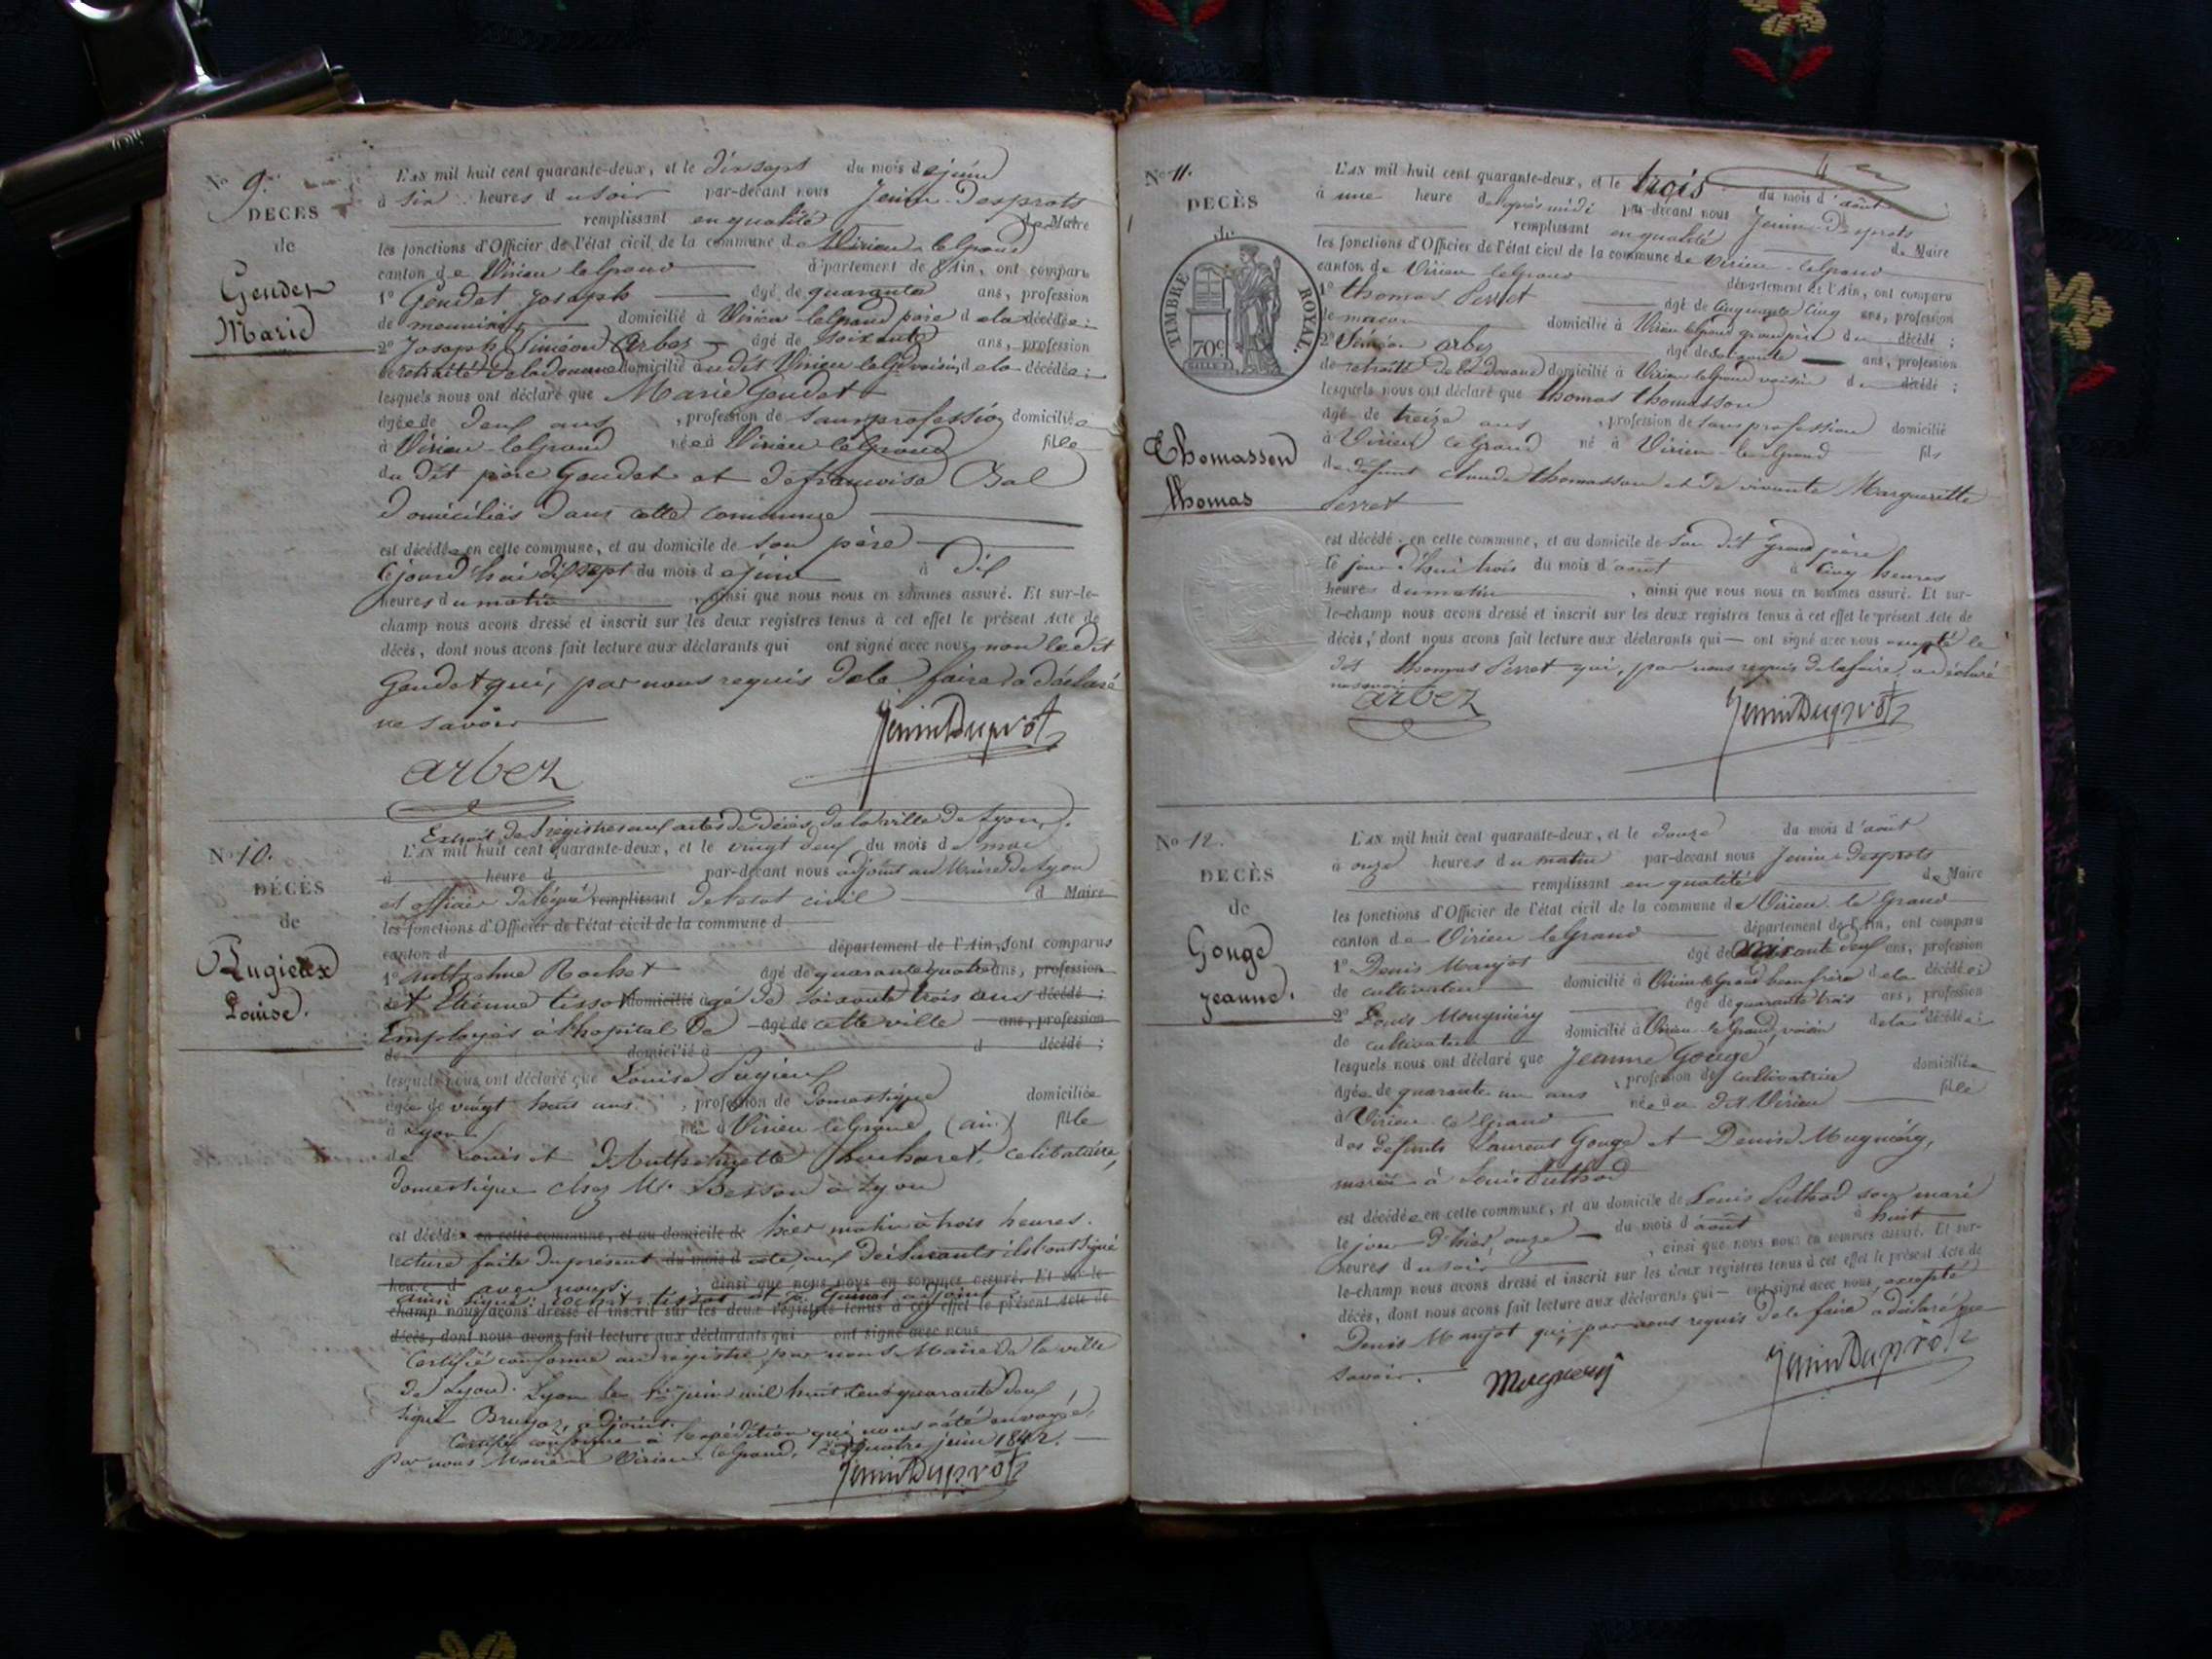 No 9.
DÉCÈS
de
Goudet
Marie
L'AN mil huit cent quarante-deux, et le dix sept du mois de juin
à six heures du soir par-devant nous Jenin Desprots
remplissant en qualité de Maire
les fonctions d'Officier de l'état civil de la commune de Virieu le grand
canton de Virieu le grand département de l'Ain, ont comparu
1° Goudet Joseph âgé de quarante ans, profession
de meunier domicilié à Virieu le grand père de la décédée ;
2° Joseph Siméon Arbez âgé de soixante ans, profession
de retraité de la douane domicilié au dit Virieu le gd voisin de la décédée ;
lesquels nous ont déclaré que Marie Goudet
âgée de deux ans , profession de sans profession domiciliée
à Virieu le grand née à Virieu le grand fille
du dit père Goudet et de françoise Bal
domiciliés dans cette commune
est décédée en cette commune, et au domicile de son père
ce jourd'hui dix sept du mois de juin à dix
heures du matin , ainsi que nous nous en sommes assuré. Et sur-le-
champ nous avons dressé et inscrit sur les deux registres tenus à cet effet le présent Acte de
décès, dont nous avons fait lecture aux déclarants qui ont signé avec nous, non le dit
Goudet qui, par nous requis de le faire a déclaré
ne savoir
Jenin Duprôt
arbez
Extrait des registres aux actes de décès de la ville de Lyon.
No 10.
DÉCÈS
de
Pugieux
Louise.
L'AN mil huit cent quarante-deux, et le vingt deux du mois de mai
à heure d par-devant nous adjoint au Maire de Lyon
et officier délégué remplissant de l'état civil d Maire
les fonctions d'Officier de l'état civil de la commune d
canton d département de l'Ain, sont comparus
1° Anthelme Rochet âgé de quarante quatre ans, profession
et Etienne tissot domicilié âgé de soixante trois ans décédé ;
Employés à l'hopital de âgé de cette ville ans, profession
de domicilié à d décédé ;
lesquels nous ont déclaré que Louise Pugieux
âgée de vingt huit ans , profession de domestique domiciliée
à Lyon née à Virieu le Grand (ain) fille
de Louis et d'Anthelmette célibataire,
domestique chez Mr Besson à Lyon
est décédée en cette commune, et au domicile de hier matin à trois heures.
lecture faite du présent du mois d acte aux déclarants ils l'ont signé
heure d avec nous. , ainsi que nous nous en sommes assuré. Et sur-le-
ainsi signé : rochet, tissot et adjoint
champ nous avons dressé et inscrit sur les deux registres tenus à cet effet le présent Acte de
décès, dont nous avons fait lecture aux déclarants qui ont signé avec nous
Certifié conforme au registre par nous Maire de la ville
de Lyon. Lyon le 1er juin mil huit cent quarante deux
signé adjoint.
Certifié conforme à l'expédition qui nous a été envoyée,
Par nous Maire de Virieu le grand, ce quatre juin 1842.
Jenin Duprôt
No 11.
DÉCÈS
de
TIMBRE ROYAL.
70c
Thomasson
thomas
L'AN mil huit cent quarante-deux, et le trois du mois d'août
à une heure de après midi par-devant nous Jenin Desprots
remplissant en qualité de Maire
les fonctions d'Officier de l'état civil de la commune de Virieu le grand
canton de Virieu le grand département de l'Ain, ont comparu
1° thomas Perret âgé de cinquante cinq ans, profession
de maçon domicilié à Virieu le grand grand père du décédé ;
2° Siméon arbez âgé de soixante ans, profession
de retraité de la douane domicilié à Virieu le grand voisin du décédé ;
lesquels nous ont déclaré que thomas thomasson
âgé de treize ans , profession de sans profession domicilié
à Virieu le Grand né à Virieu le Grand fils
de défunt claude thomasson et de vivante Margueritte
Perret
est décédé en cette commune, et au domicile de son dit grand père
le jour d'hui trois du mois d'août à cinq heures
heures du matin , ainsi que nous nous en sommes assuré. Et sur-
le-champ nous avons dressé et inscrit sur les deux registres tenus à cet effet le présent Acte de
décès, dont nous avons fait lecture aux déclarants qui ont signé avec nous excepté le
dit thomas Perret qui, par nous requis de le faire, a déclaré
ne savoir
arbez
Jenin Duprôt
No 12.
DÉCÈS
de
Gouge
jeanne.
L'AN mil huit cent quarante-deux, et le douze du mois d'août
à onze heures du matin par-devant nous Jenin Desprots
remplissant en qualité de Maire
les fonctions d'Officier de l'état civil de la commune de Virieu le Grand
canton de Virieu le Grand département de l'Ain, ont comparu
1° Denis Maujot âgé de soixante deux ans, profession
de cultivateur domicilié à Virieu le Grand beau frère de la décédée ;
2° Louis Mougniéry âgé de quarante trois ans, profession
de cultivateur domicilié à Virieu le Grand, voisin de la décédée ;
lesquels nous ont déclaré que Jeanne Gouge
âgée de quarante un ans , profession de cultivatrice domiciliée
à Virieu le Grand née au dit Virieu fille
des défunts Laurent Gouge et Denise Mugniéry,
mariée à Louis Puthod
est décédée en cette commune, et au domicile de Louis Puthod son mari
le jour d'hier, onze du mois d'août à huit
heures du soir , ainsi que nous nous en sommes assuré. Et sur-
le-champ nous avons dressé et inscrit sur les deux registres tenus à cet effet le présent Acte de
décès, dont nous avons fait lecture aux déclarants qui ont signé avec nous, excepté
Denis Maujot qui, par nous requis de le faire a déclaré ne
savoir.
Mugnery
Jenin Duprôt